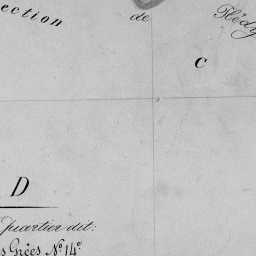 ection de Plédy
C
D
Quartier dit:
s Grées N.º 14º